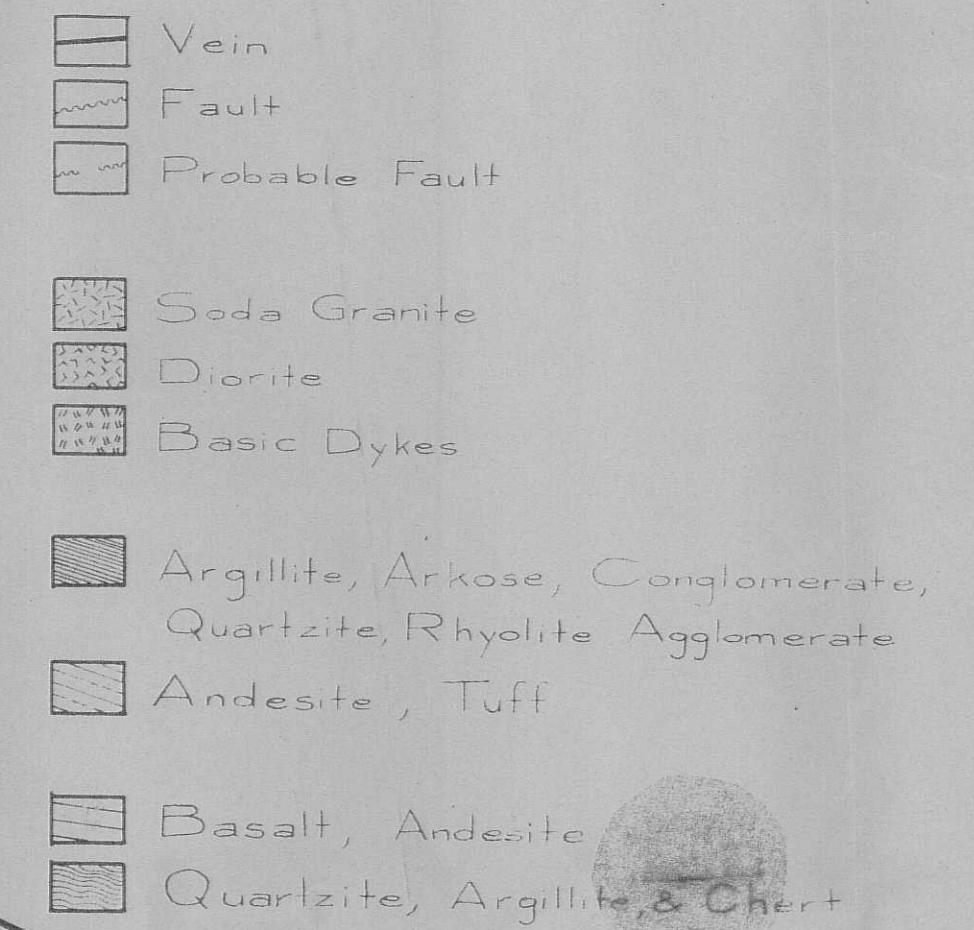 Vein
Fault
Probable Fault
Soda Granite
Diorite
Basic Dykes
Argillite, Arkose, Conglomerate,
Quartzite, Rhyolite Agglomerate
Andesite, Tuff
Basalt, Andesite
Quartzite, Argillite, & Chert